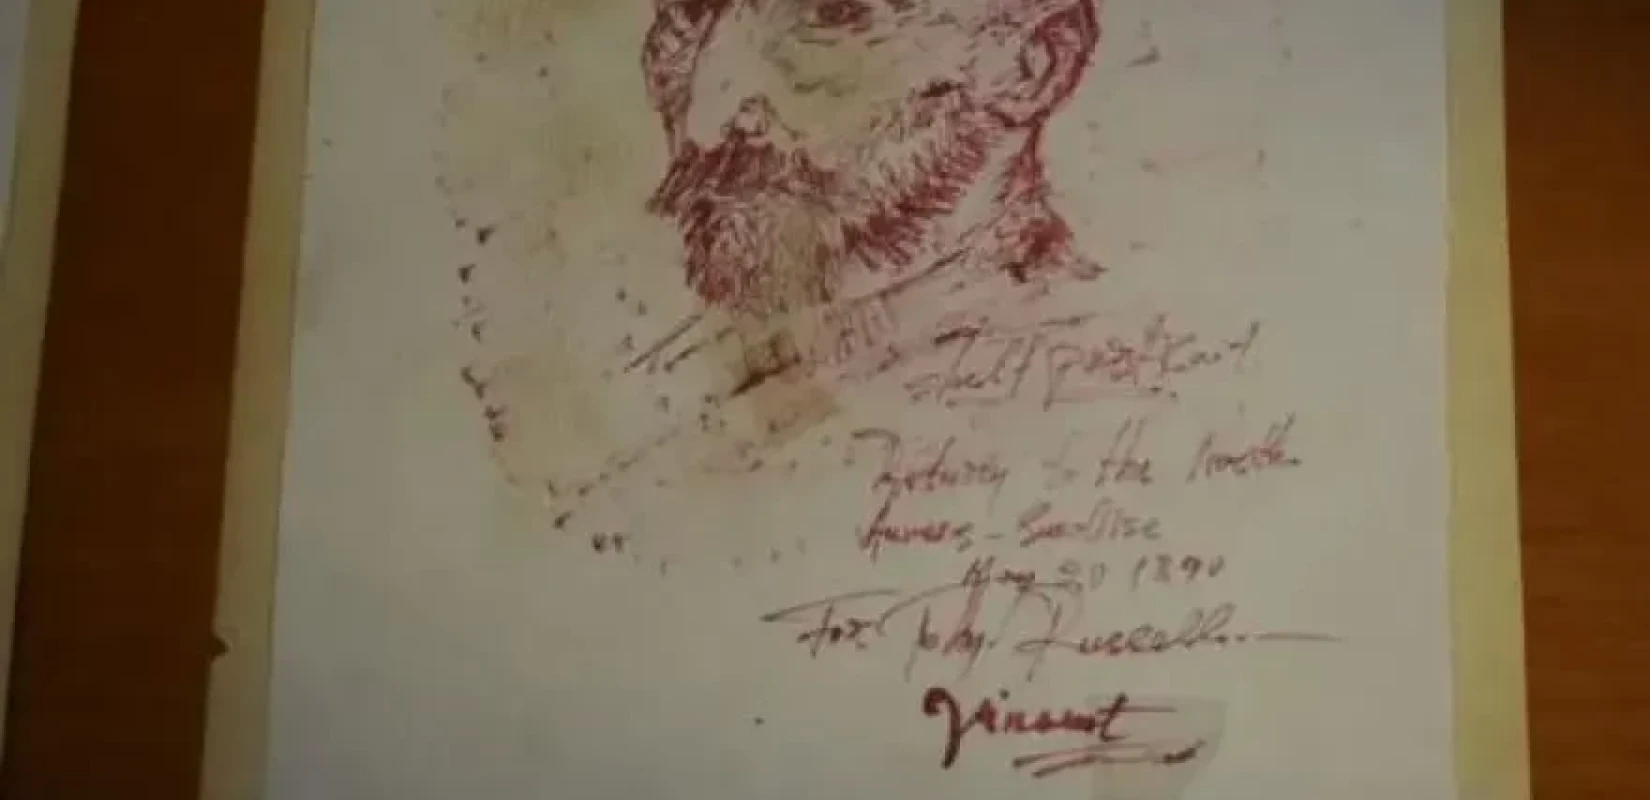 Self portrait
Returning to the North
Auvers-Sur-Oise
May 20 1890
For: Russell
Vincent